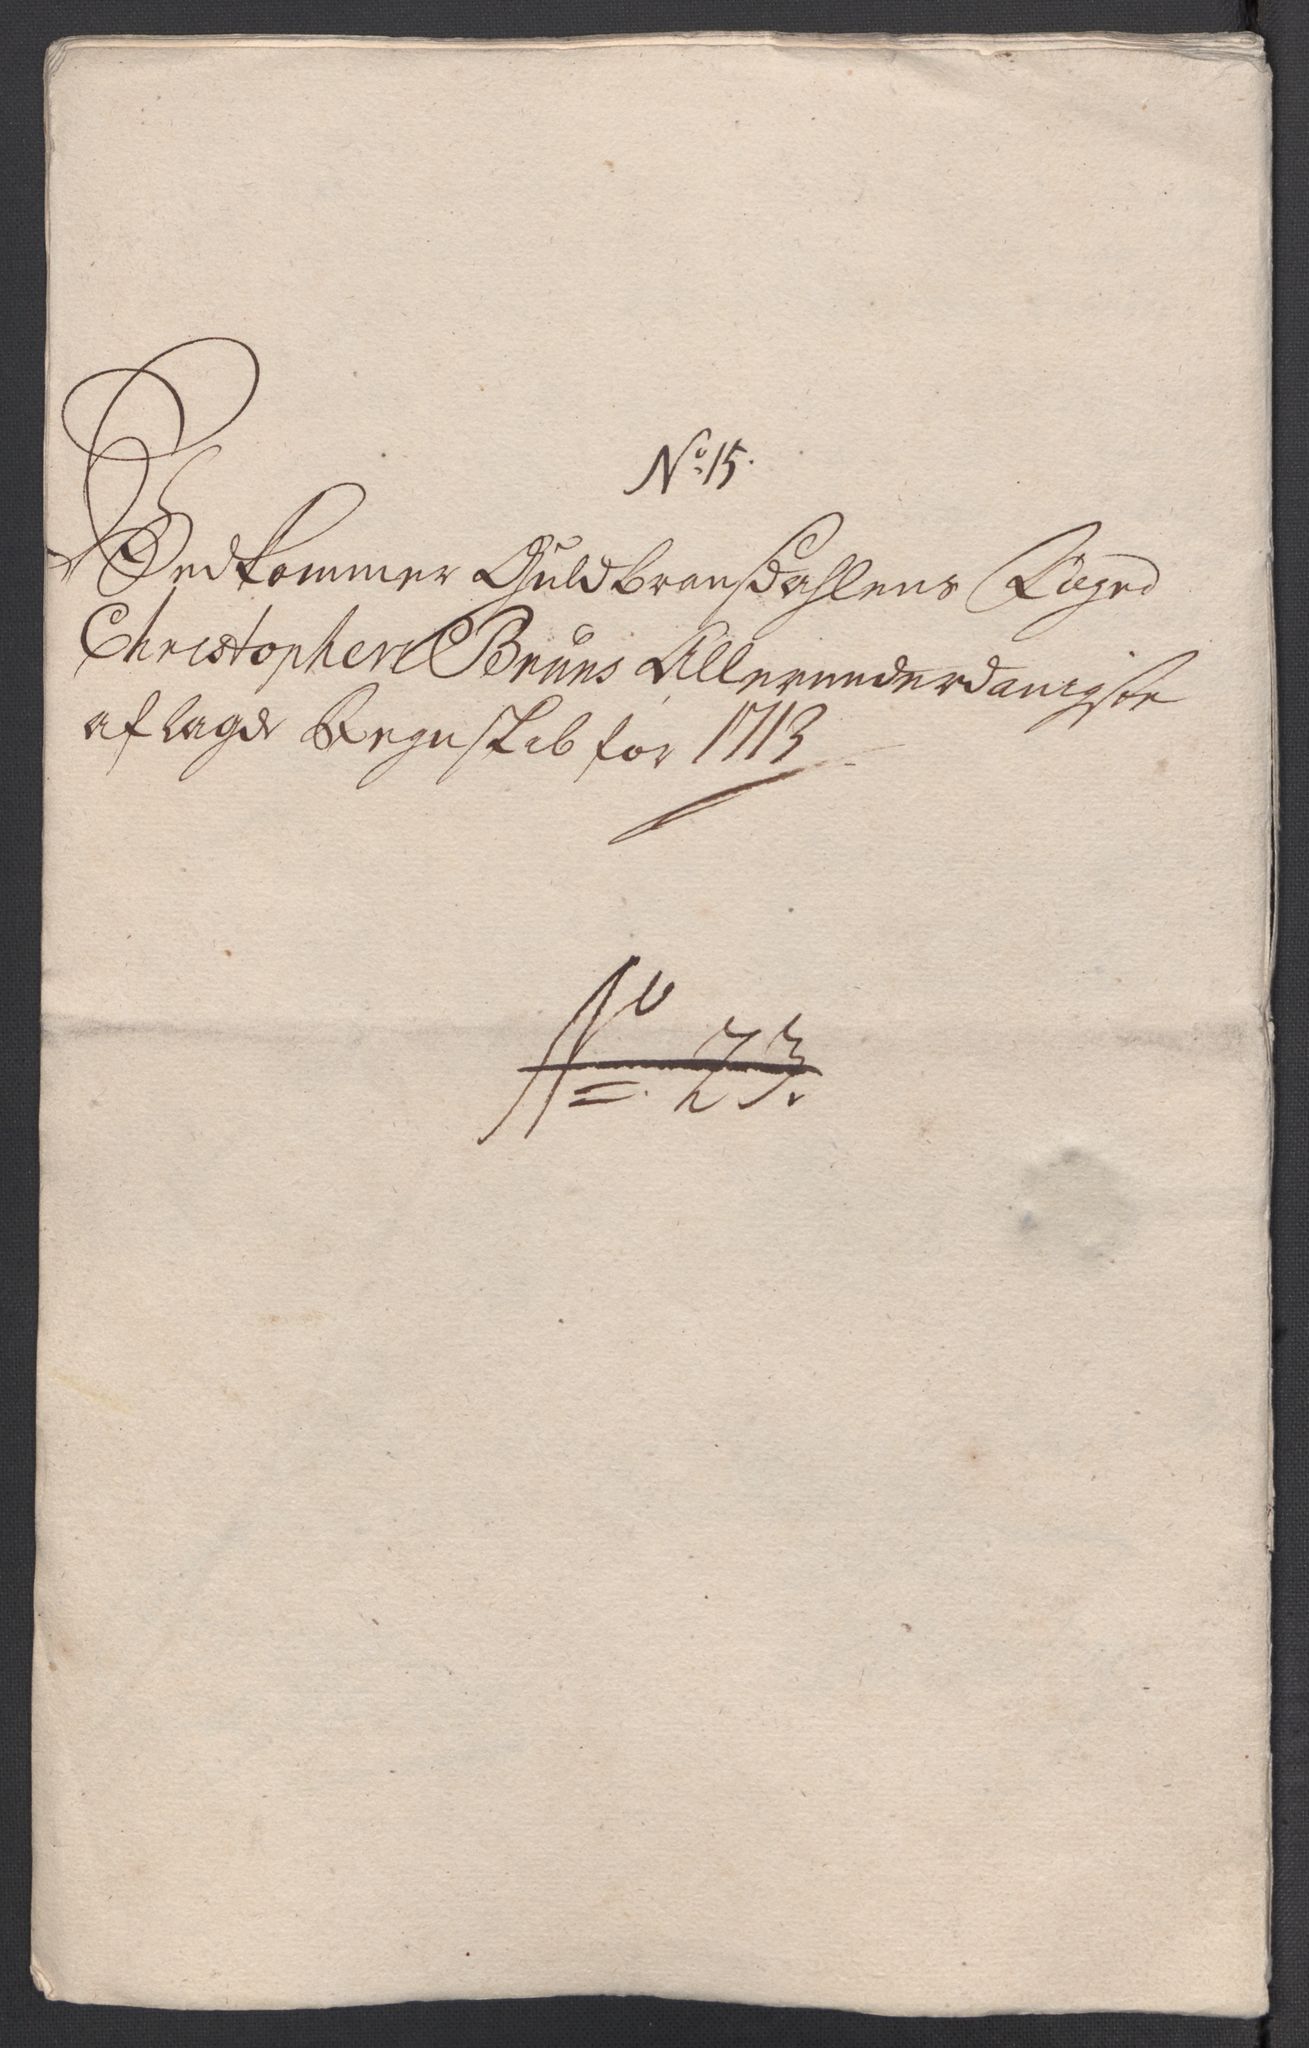 No: 15.
Vedkommer Guldbransdahlens Foged
Christopher Bruns Allerunderdanigste
aflagde Regnskab for 1713
No. 23.